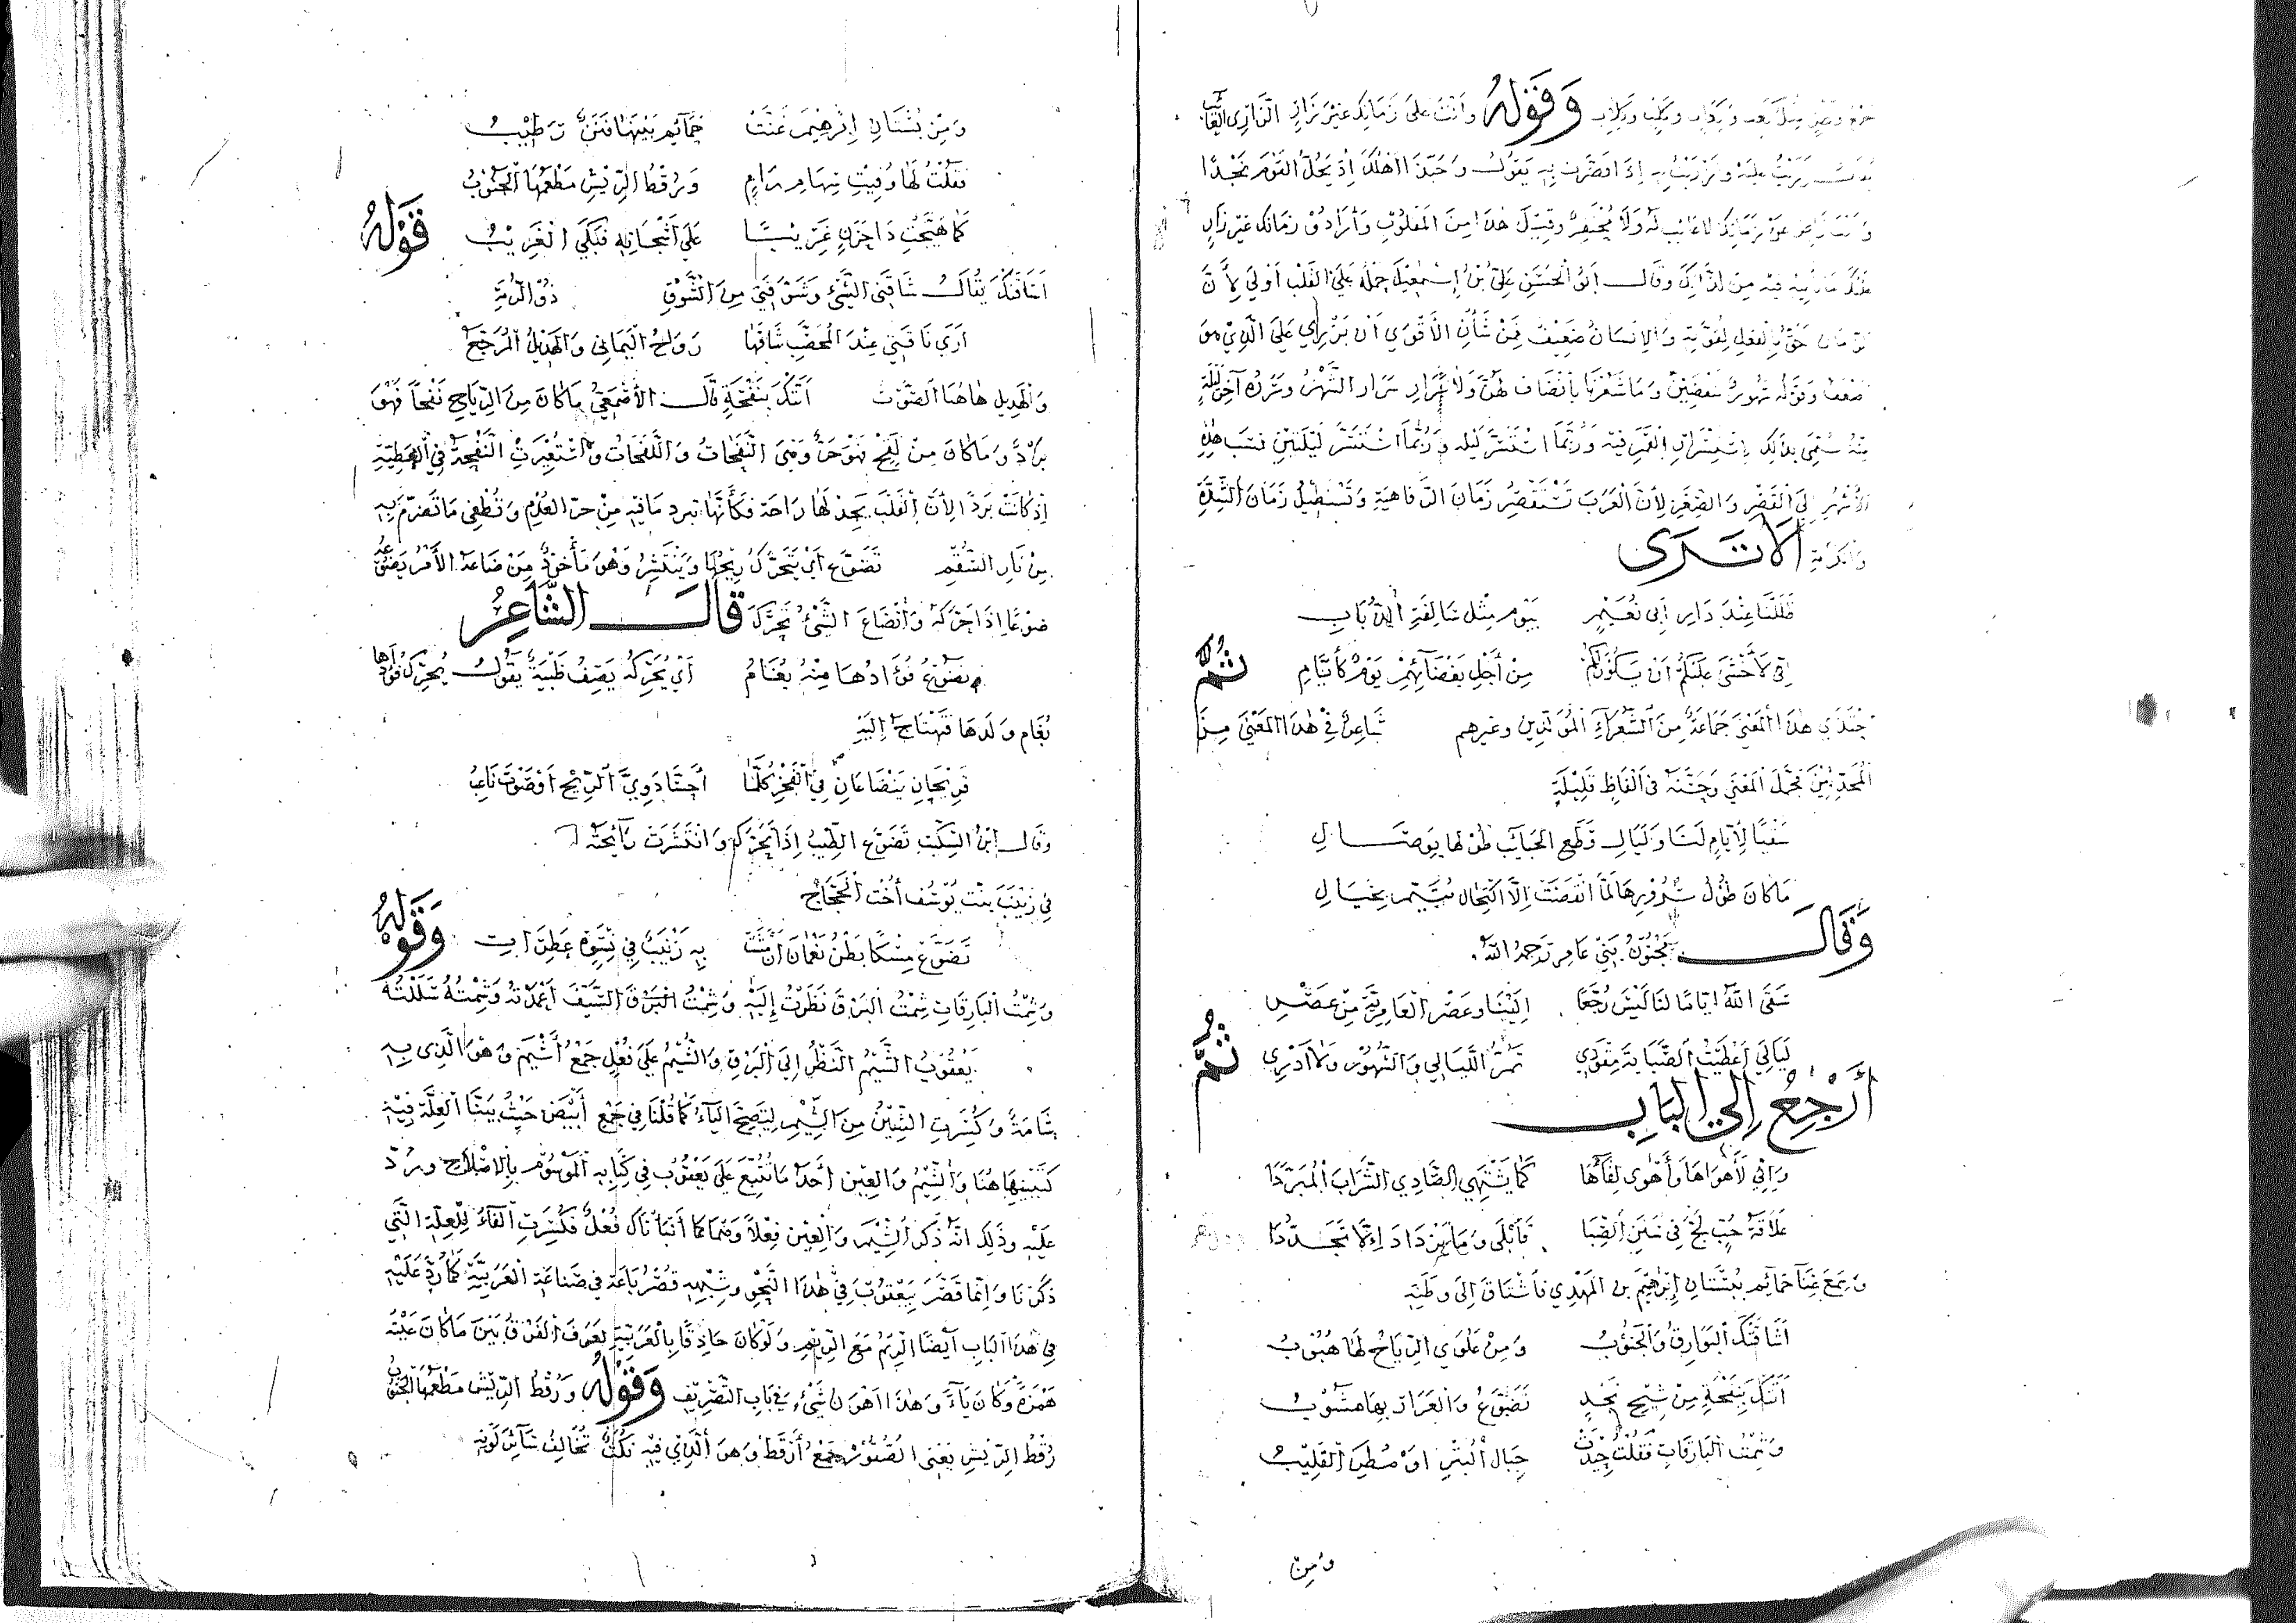 وَقَوْلُهُ وَأَنْتَ عَلَى زَمَانِكَ غَيْرُ زَارِ الزَّارِي العَائِبُ
عَلَيْهِ إِذَا قَصَّرْتَ بِهِ يَقُولُ وَحَبَّذَا أَهْلُكَ إِذْ يَحُلُّ القَوْمُ نَجْدًا
وَأَنْتَ رَاضٍ عَنْ زَمَانِكَ لَا عَائِبٌ لَهُ وَلَا مُحْتَقِرٌ وَقِيلَ هَذَا مِنَ المَقْلُوبِ وَأَرَادَ وَزَمَانُكَ غَيْرُ زَارٍ
عَلَيْكَ مَا فِيهِ مِنْ لَذَّاتِكَ وَقَالَ أَبُو الحَسَنِ عَلِيُّ بْنُ إِسْمَعِيلَ حَمْلُهُ عَلَى القَلْبِ أَوْلَى لِأَنَّ
الزَّمَانَ بِالفِعْلِ لِقُوَّتِهِ وَالإِنْسَانُ ضَعِيفٌ فَمِنْ شَأْنِ الأَقْوَى أَنْ يَزْرِيَ عَلَى الَّذِي هُوَ
أَضْعَفُ وَقَوْلُهُ شُهُورٌ يَنْقَضِينَ وَمَا شَعَرْنَا بِأَنْصَافٍ لَهُنَّ وَلَا سَرَارِ سَرَارُ الشَّهْرِ وَسَرَرُهُ آخِرُ لَيْلَةٍ
مِنْهُ سُمِّيَ بِذَلِكَ لِاسْتِسْرَارِ القَمَرِ فِيهِ وَرُبَّمَا اسْتَسَرَّ لَيْلَهُ وَرُبَّمَا اسْتَسَرَّ لَيْلَتَيْنِ نَسَبَ هَذِهِ
الأَشْهُرَ إِلَى القِصَرِ وَالصِّغَرِ لِأَنَّ العَرَبَ تَسْتَقْصِرُ زَمَانَ الرَّفَاهِيَةِ وَتَسْتَطِيلُ زَمَانَ الشِّدَّةِ
أَلَا تَرَى
ظَلِلْنَا عِنْدَ دَارِ أَبِي نُعَيْمٍ بِيَوْمٍ مِثْلِ سَالِفَةِ الذُّبَابِ
إِنِّي لَأَخْشَى عَلَيْكُمْ أَنْ يَكُونَ لَكُمْ مِنْ أَجْلِ بَغْضَائِهِمْ يَوْمٌ كَأَيَّامِ ثُمَّ
احْتَذَى هَذَا المَعْنَى جَمَاعَةٌ مِنَ الشُّعَرَاءِ المُوَلَّدِينَ وَغَيْرِهِمْ شَاعِرٌ فِي هَذَا المَعْنَى مِنَ
المُحْدَثِينَ فَحَمَلَ المَعْنَى وَحَسَّنَهُ فِي أَلْفَاظٍ قَلِيلَةٍ
سَقْيًا لِأَيَّامٍ لَنَا وَلَيَالِ قَطَعَ الحَبَائِبُ طُولَهَا بِوِصَالِ
مَا كَانَ طُولُ سُرُورِهَا لَمَّا انْقَضَتْ إِلَّا اكْتِحَالَ مُتَيَّمٍ بِخَيَالِ
وَقَالَ مَجْنُونُ بَنِي عَامِرٍ رَحِمَهُ اللهُ
سَقَى اللهُ أَيَّامًا لَنَا لَيْسَ رُجَّعًا إِلَيْنَا وَعَصْرَ العَامِرِيَّةِ مِنْ عَصْرِ
لَيَالِيَ أَعْطَيْتُ الصَّبَابَةَ مِقْوَدِي تَمُرُّ اللَّيَالِي وَالشُّهُورُ وَلَا أَدْرِي ثُمَّ
أَرْجِعُ إِلَى البَابِ
وَإِنِّي لَأَهْوَاهَا وَأَهْوَى لِقَاءَهَا كَمَا يَشْتَهِي الصَّادِي الشَّرَابَ المُبَرَّدَا
عَلَاقَةَ حُبٍّ لَجَّ فِي سَنَنِ الصِّبَا فَأَبْلَى وَمَا يَزْدَادُ إِلَّا تَجَدُّدَا
وَسَمِعَ غِنَاءَ حَمَائِمَ بِبُسْتَانِ إِبْرَاهِيمَ بْنِ المَهْدِي فَاشْتَاقَ إِلَى وَطَنِهِ
أَشَاقَتْكَ البَوَارِقُ وَالجَنُوبُ وَمِنْ عُلْوِيِّ الرِّيَاحِ لَهَا هُبُوبُ
أَتَتْكَ بِنَفْحَةٍ مِنْ شِيحِ نَجْدٍ تَضَوَّعُ وَالعَرَارُ بِهَا مَشُوبُ
وَشِمْتُ البَارِقَاتِ فَقُلْتُ جِيدَتْ جِبَالُ البُشْرِ أَوْ مُطِرَ القَلِيبُ
وَمِنْ
وَمِنْ بُسْتَانِ إِبْرَهِيمَ غَنَّتْ حَمَائِمُ بَيْنَهَا فَنَنٌ رَطِيبُ
فَقُلْتُ لَهَا وُقِيتِ سِهَامَ رَامٍ وَرُقْطُ الرِّيشِ مَطْعَمُهَا الجَنُوبُ
كَمَا هَيَّجْتِ ذَا حَزَنٍ غَرِيبًا عَلَى أَشْجَانِهِ فَبَكَى الغَرِيبُ قَوْلُهُ
أَشَاقَتْكَ يُقَالُ شَاقَنِي الشَّيْءُ وَشَوَّقَنِي مِنَ الشَّوْقِ ذُو الرُّمَّةِ
أَرَى نَاقَتِي عِنْدَ المُحَصَّبِ شَاقَهَا رَوَاحُ اليَمَانِي وَالهَدِيلُ المُرَجَّعُ
وَالهَدِيلُ هَاهُنَا الصَّوْتُ أَتَتْكَ بِنَفْحَةٍ قَالَ الأَصْمَعِيُّ مَا كَانَ مِنَ الرِّيَاحِ نَفْحًا فَهْوَ
بَرْدٌ وَمَا كَانَ مِنْ لَفْحٍ فَهْوَ حَرٌّ وَهِيَ النَّفَحَاتُ وَاللَّفَحَاتُ وَاسْتُعِيرَتِ النَّفْحَةُ فِي العَطِيَّةِ
إِذْ كَانَتْ بَرْدًا لِأَنَّ القَلْبَ يَجِدُ لَهَا رَاحَةً فَكَأَنَّهَا تُبَرِّدُ مَا فِيهِ مِنْ حَرِّ العُدْمِ وَتُطْفِي مَا تَضَرَّمَ بِهِ
مِنْ نَارِ السُّقْمِ تَضَوَّعُ أَيْ يَتَحَرَّكُ رِيحُهَا وَيَنْتَشِرُ وَهُوَ مَأْخُوذٌ مِنْ ضَاعَهُ الأَمْرُ يَضُوعُهُ
ضَوْعًا إِذَا حَرَّكَهُ وَانْضَاعَ الشَّيْءُ تَحَرَّكَ قَالَ الشَّاعِرُ
يَضُوعُ فُؤَادَهَا مِنْهُ بُغَامُ أَيْ يُحَرِّكُهُ يَصِفُ ظَبْيَةً يَقُولُ يُحَرِّكُ فُؤَادَهَا
بُغَامُ وَلَدِهَا فَتَهْتَاجُ إِلَيْهِ
فُرَيْخَانِ يَنْضَاعَانِ فِي الفَجْرِ كُلَّمَا أَحَسَّا دَوِيَّ الرِّيحِ أَوْ صَوْتَ نَاعِبِ
وَقَالَ ابْنُ السِّكِّيتِ تَضَوَّعَ الطِّيبُ إِذَا تَحَرَّكَ وَانْتَشَرَتْ رَائِحَتُهُ
فِي زَيْنَبَ بِنْتِ يُوسُفَ أُخْتِ الحَجَّاجِ
تَضَوَّعَ مِسْكًا بَطْنُ نَعْمَانَ أَنْ مَشَتْ بِهِ زَيْنَبٌ فِي نِسْوَةٍ عَطِرَاتِ وَقَوْلُهُ
وَشِمْتُ البَارِقَاتِ شِمْتُ البَرْقَ نَظَرْتُ إِلَيْهِ وَشِمْتُ السَّيْفَ أَغْمَدْتُهُ وَشِمْتُهُ سَلَلْتُهُ
يَعْقُوبُ الشَّيْمُ النَّظَرُ إِلَى البَرْقِ وَالشِّيمُ عَلَى فُعْلٍ جَمْعُ أَشْيَمَ وَهُوَ الَّذِي بِهِ
شَامَةٌ وَكُسِرَتِ الشِّينُ مِنَ الشِّيمِ لِتَصِحَّ اليَاءُ كَمَا قُلْنَا فِي جَمْعِ أَبْيَضَ حَيْثُ بَيَّنَّا العِلَّةَ فِيهِ
هَاهُنَا وَالشِّيمُ وَالعِينُ أَحَدُ مَا تُتُبِّعَ عَلَى يَعْقُوبَ فِي كِتَابِهِ المَوْسُومِ بِالإِصْلَاحِ وَرُدَّ
عَلَيْهِ وَذَلِكَ أَنَّهُ ذَكَرَ الشِّيمَ وَالعِينَ فِعْلًا وَهُمَا كَمَا أَنْبَأْنَاكَ فُعْلٌ فَكُسِرَتِ الفَاءُ لِلْعِلَّةِ الَّتِي
ذَكَرْنَا وَإِنَّمَا قَصَّرَ بِيَعْقُوبَ فِي هَذَا النَّحْوِ وَشِبْهِهِ قِصَرُ بَاعِهِ فِي صِنَاعَةِ العَرَبِيَّةِ كَمَا رُدَّ عَلَيْهِ
فِي هَذَا البَابِ أَيْضًا الرِّيمُ مَعَ الرِّئْمِ وَلَوْ كَانَ حَاذِقًا بِالعَرَبِيَّةِ لَعَرَفَ الفَرْقَ بَيْنَ مَا كَانَ عَيْنُهُ
هَمْزَةً وَكَانَ يَاءً وَهَذَا أَهْوَنُ شَيْءٍ فِي بَابِ التَّصْرِيفِ وَقَوْلُهُ وَرُقْطُ الرِّيشِ مَطْعَمُهَا الجَنُوبُ
رُقْطُ الرِّيشِ يَعْنِي الصُّقُورَ جَمْعُ أَرْقَطَ وَهُوَ الَّذِي فِيهِ نُكَتٌ تُخَالِفُ سَائِرَ لَوْنِهِ